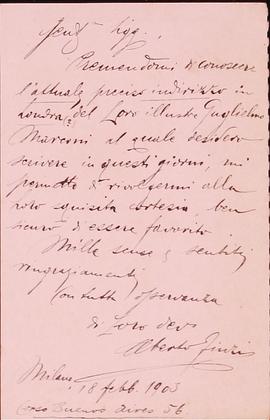 Gent. Sigg.,
Premendomi di conoscere
l'attuale preciso indirizzo in
Londra, del Loro illustre Guglielmo
Marconi al quale desidero
scrivere in questi giorni, mi
permetto di rivolgermi alla
loro squisita cortesia, ben
sicuro di essere favorito.
Mille scuse e sentiti
ringraziamenti
Con tutta osservanza
di Loro dev.
Alberto Finzi
Milano, 18 febb. 1903
Corso Buenos Aires 56.